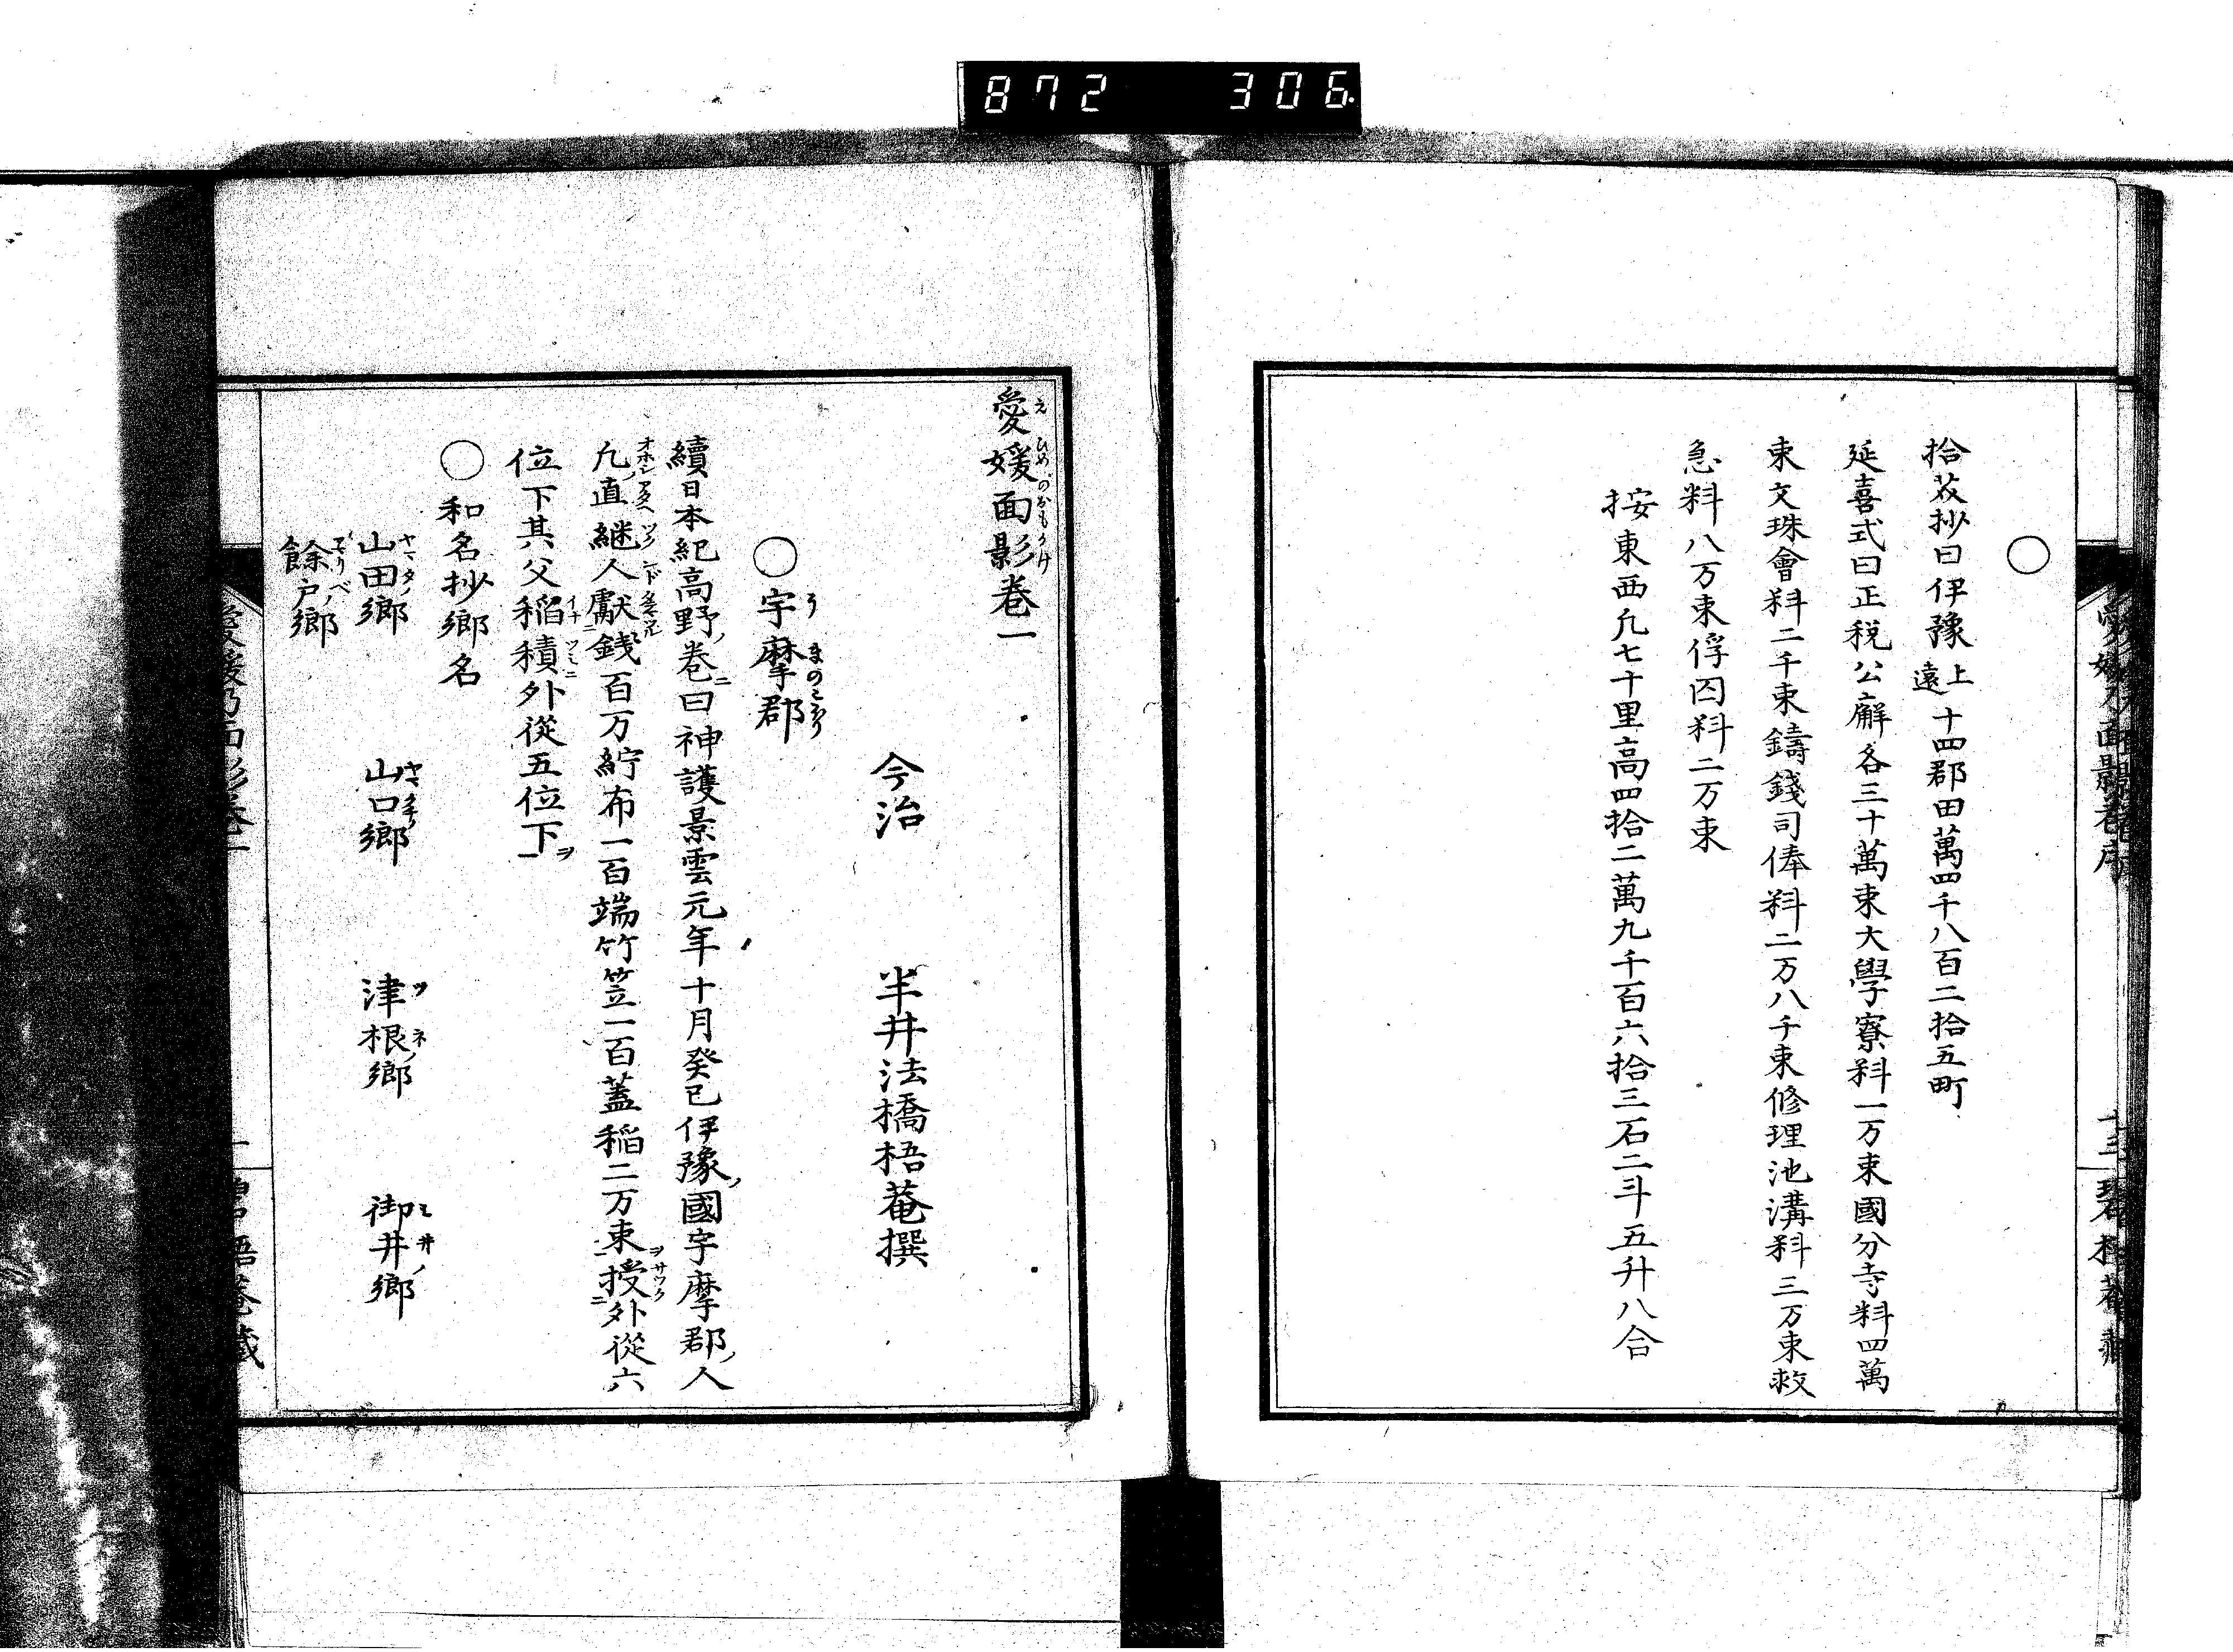 872 306
○
拾芥抄曰伊豫上遠十四郡田萬四千八百二拾五町
延喜式曰正税公廨各三十萬束大學寮料一万束國分寺料四萬
束文珠會料二千束鑄錢司俸料二万八千束修理池溝料三万束救
急料八万束俘囚料二万束
按東西凡七十里高四拾二萬九千百六拾三石二斗五升八合
愛媛面影卷一
えひめのおもかげ
今治 半井法橋梧菴撰
○宇摩郡
うまのこほり
續日本紀高野ノ卷ニ曰神護景雲元年十月癸巳伊豫ノ國宇摩郡ノ人
凡ノ直継人獻錢百万紵布一百端竹笠一百蓋稲二万束授外從六
位下其父稲積外從五位下ヲ
○和名抄郷名
山田郷 山口郷 津根郷 御井郷
餘戸郷